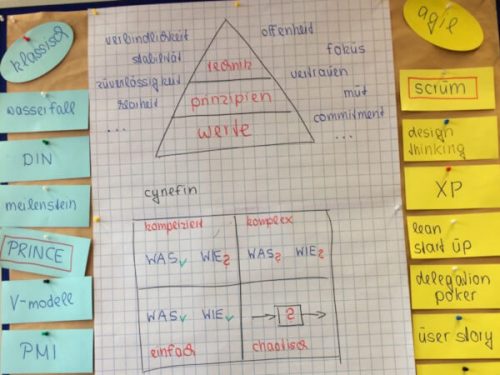 klassisch
wasserfall
DIN
meilenstein
PRINCE
V-modell
PMI
verbindlichkeit
stabilität
züverlässigkeit
klarheit
...
technik
prinzipien
werte
offenheit
foküs
vertraüen
müt
commitment
...
cynefin
kompliziert
WAS✓ WIE?
komplex
WAS? WIE?
WAS✓ WIE✓
einfach
?
chaotisch
agile
scrüm
design
thinking
XP
lean
start üp
delegation
poker
üser story